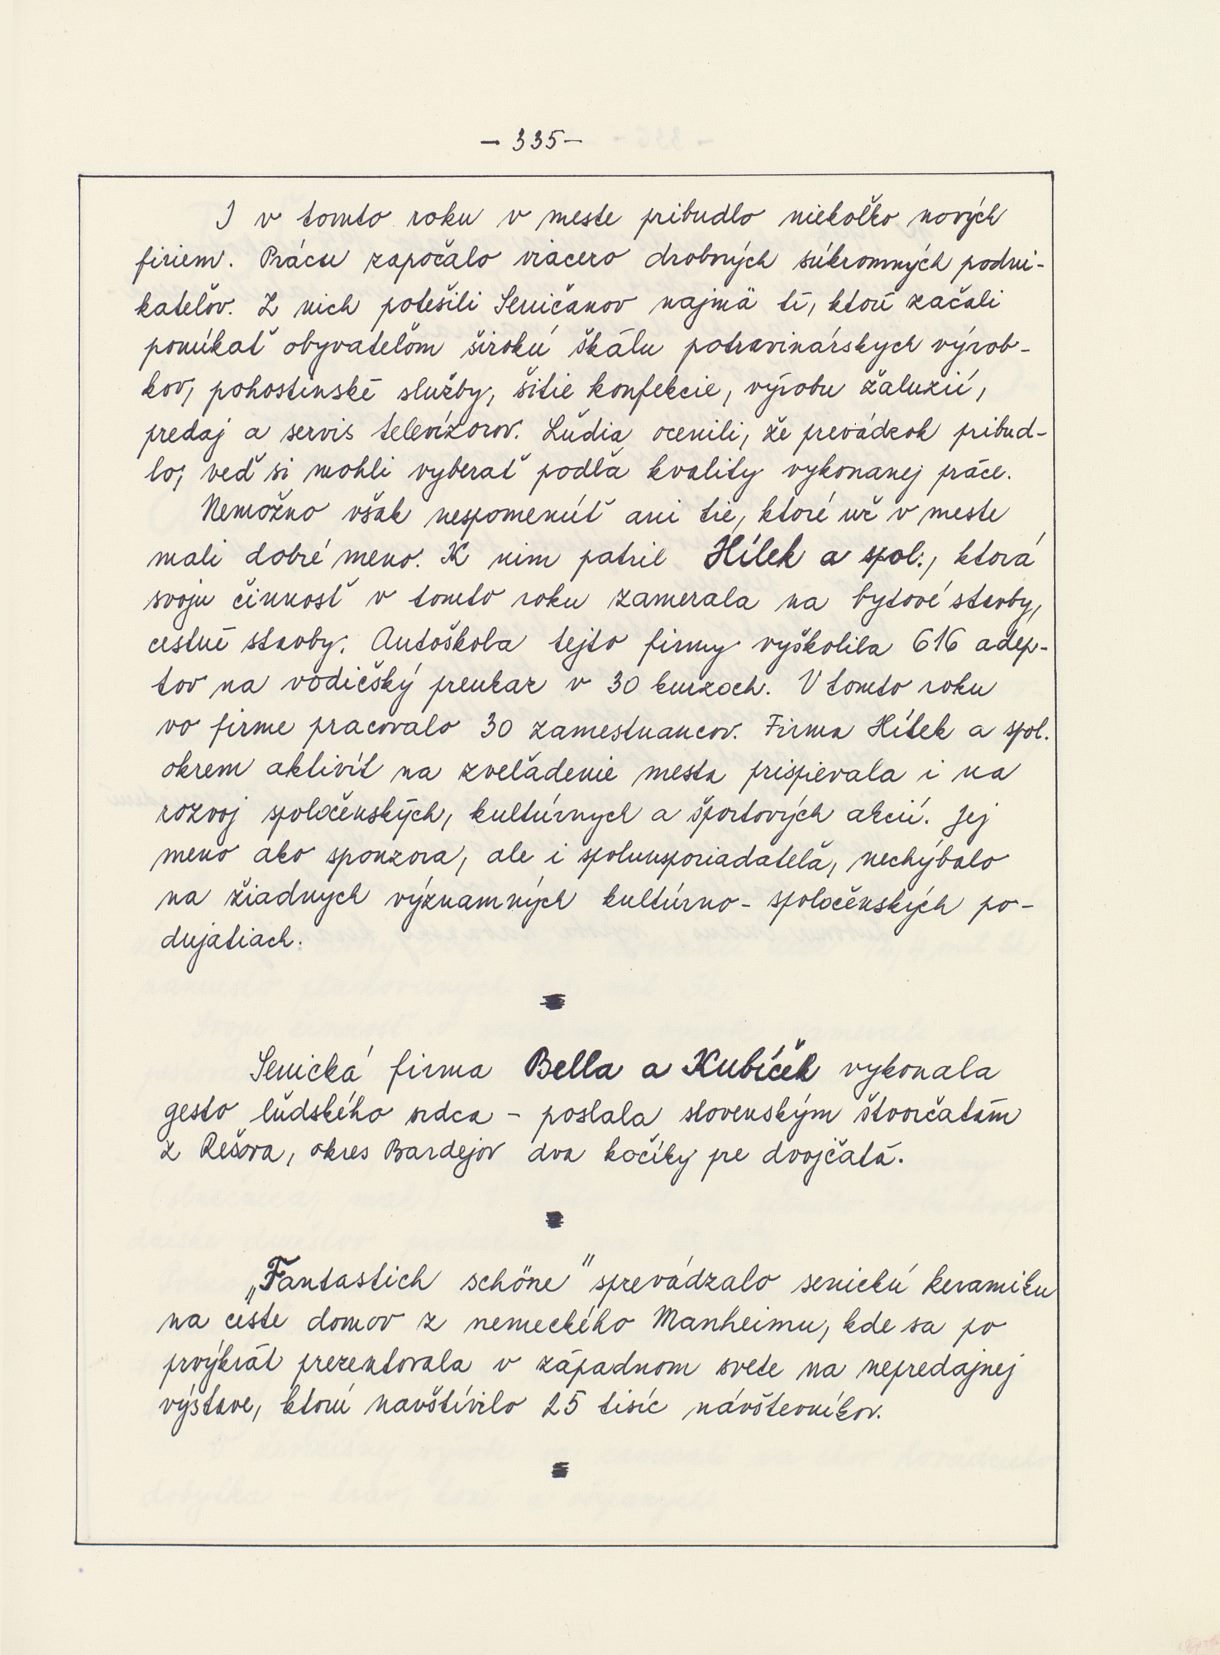 - 335 -
I v tomto roku v meste pribudlo niekoľko nových
firiem. Prácu započalo viacero drobných súkromných podni-
kateľov. Z nich potešili Seničanov najmä tí, ktorí začali
ponúkať obyvateľom širokú škálu potravinárskych výrob-
kov, pohostinské služby, šitie konfekcie, výrobu žaluzií,
predaj a servis televízorov. Ľudia ocenili, že prevádzok pribud-
lo, veď si mohli vyberať podľa kvality vykonanej práce.
Nemožno však nespomenúť ani tie, ktoré už v meste
mali dobré meno. K nim patril Hílek a spol., ktorá
svoju činnosť v tomto roku zamerala na bytové stavby,
cestné stavby. Autoškola tejto firmy vyškolila 616 adep-
tov na vodičský preukaz v 30 kurzoch. V tomto roku
vo firme pracovalo 30 zamestnancov. Firma Hílek a spol.
okrem aktivít na zveľadenie mesta prispievala i na
rozvoj spoločenských, kultúrnych a športových akcií. Jej
meno ako sponzora, ale i spoluusporiadateľa, nechýbalo
na žiadnych významných kultúrno - spoločenských po-
dujatiach.
Senická firma Bella a Kubíček vykonala
gesto ľudského srdca - poslala slovenským štvorčatám
z Rešova, okres Bardejov dva kočíky pre dvojčatá.
„Fantastich schöne" sprevádzalo senickú keramiku
na ceste domov z nemeckého Manheimu, kde sa po
prvýkrát prezentovala v západnom svete na nepredajnej
výstave, ktorú navštívilo 25 tisíc návštevníkov.